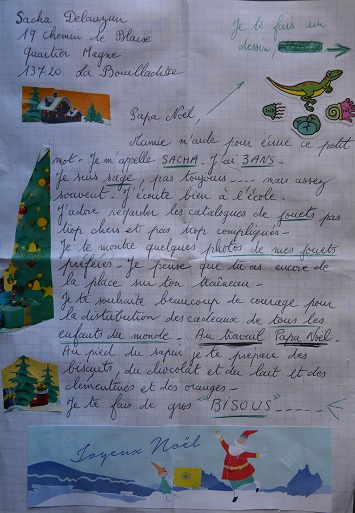 Sacha Delauzun
19 Chemin de Blaise
Quartier Magne
13720 La Bouilladisse
Je te fais un
dessin,
Papa Noël,
Mamie m'aide pour écrire ce petit
mot - Je m'appelle SACHA. J'ai 3 ANS.
Je suis sage, pas toujours ---- mais assez
souvent - J'écoute bien à l'école.
J'adore regarder les catalogues de jouets pas
trop chers et pas trop compliqués -
Je te montre quelques photos de mes jouets
préférés - Je pense que tu as encore de
la place sur ton traîneau -
Je te souhaite beaucoup de courage pour
la distribution des cadeaux de tous les
enfants du monde - Au travail Papa Noël.
Au pied du sapin je te prépare des
biscuits, du chocolat et du lait et des
clémentines et des oranges -
Je te fais de gros "BISOUS"-----
Joyeux Noël